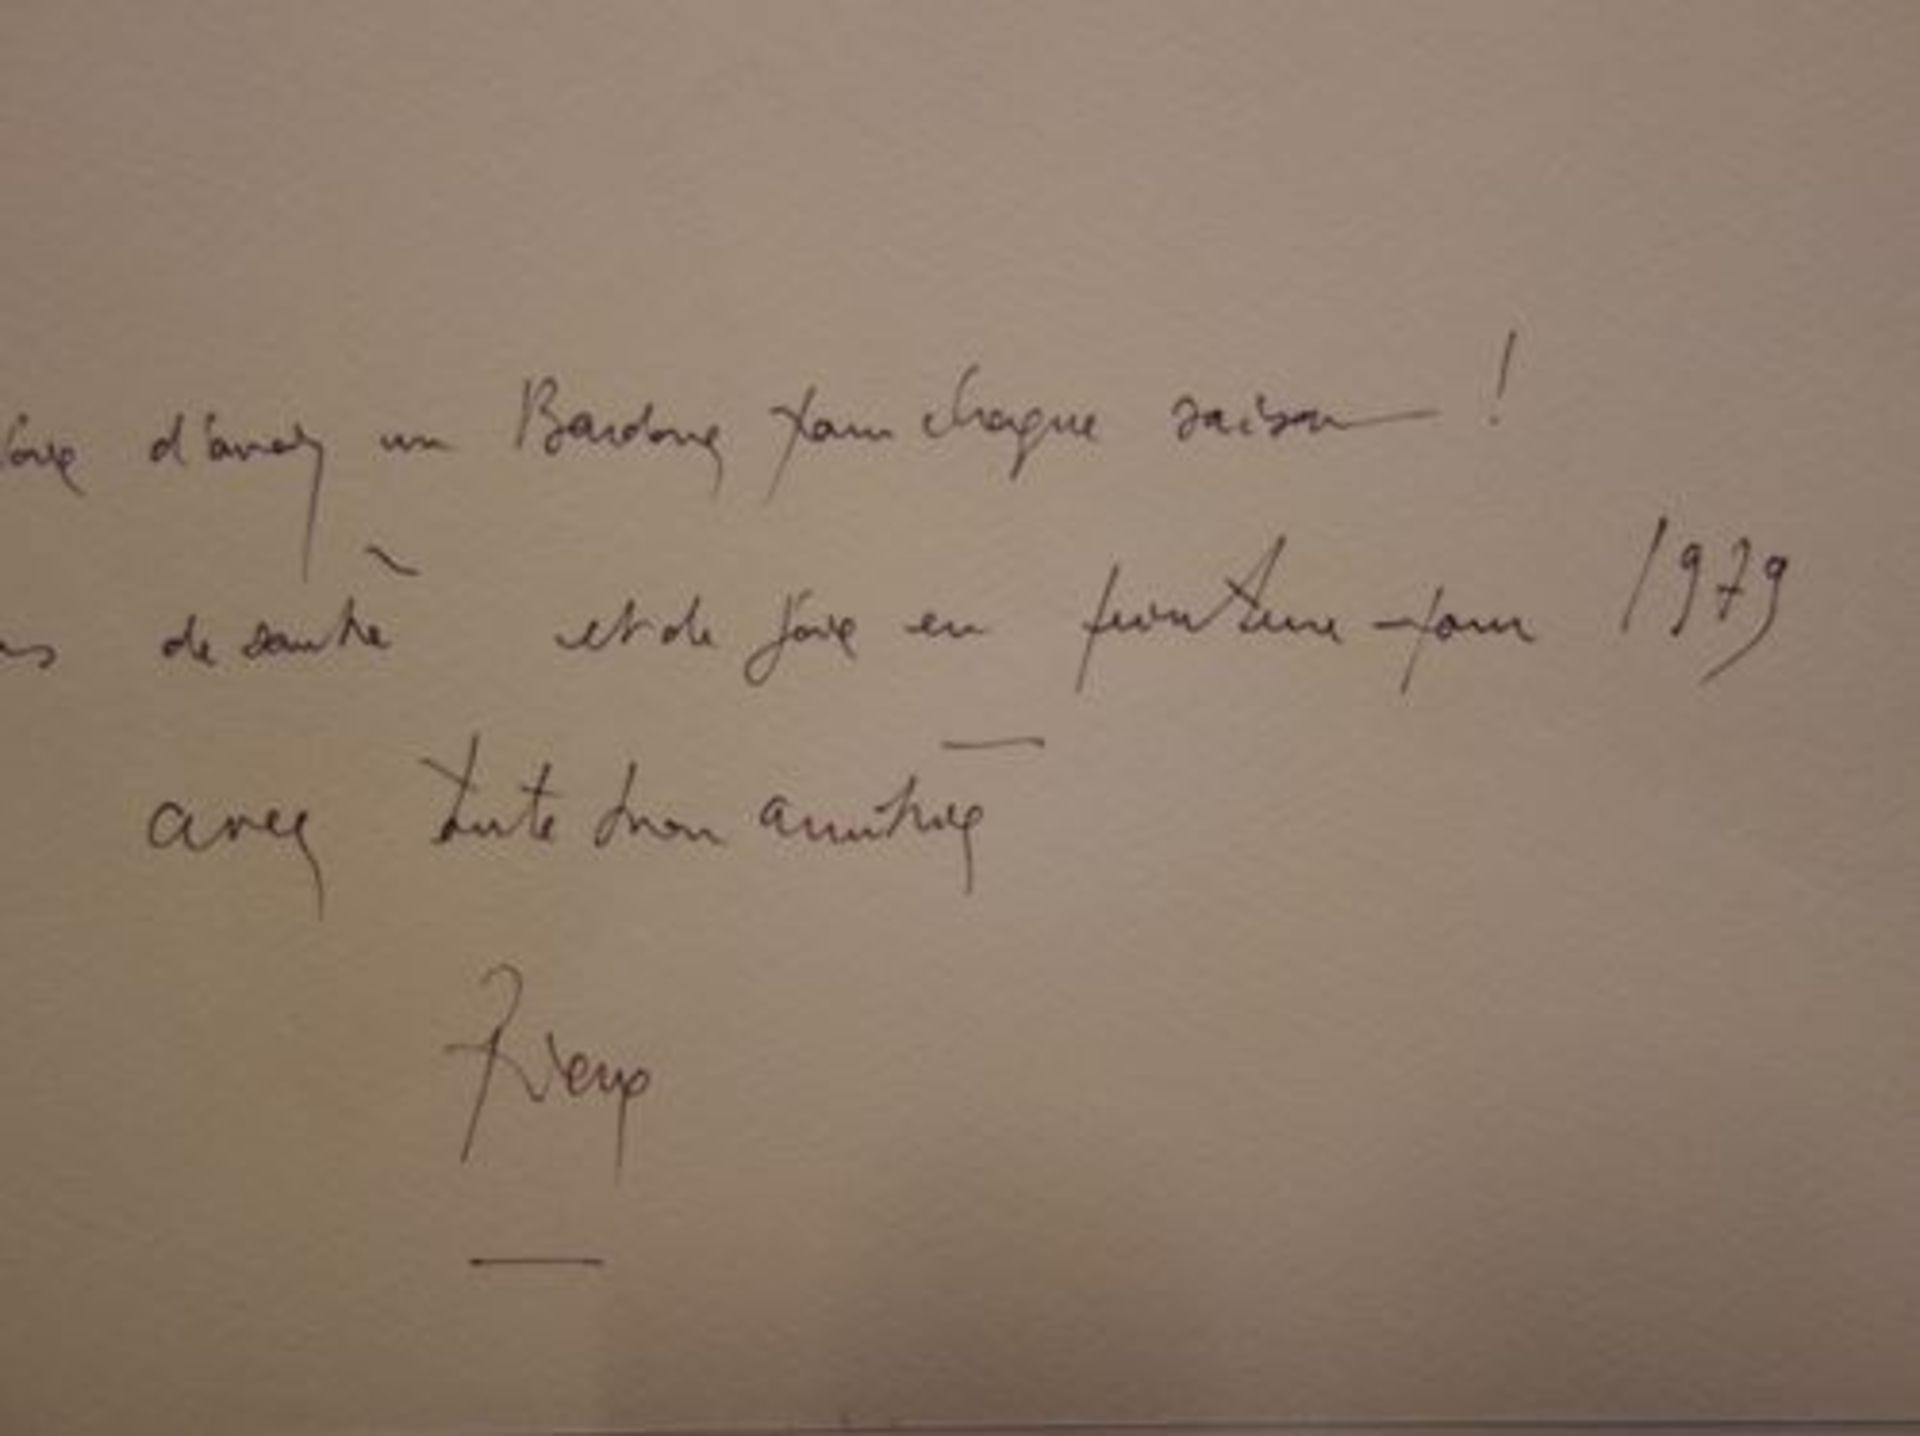 joie d'avoir un Bardone pour chaque saison !
de santé et de joie en peinture - pour 1979
avec toute mon amitié